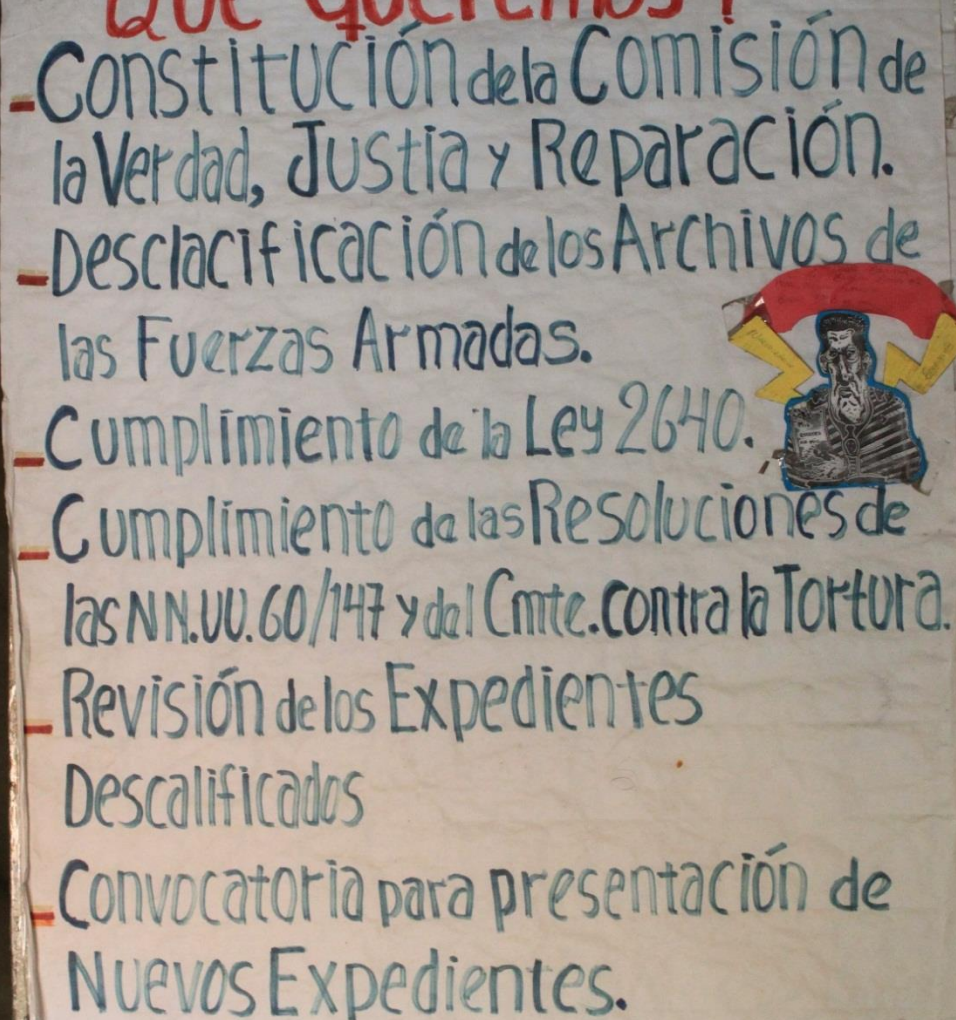 Que queremos?
- Constitución de la Comisión de
la Verdad, Justia y Reparación.
- Desclacificación de los Archivos de
las Fuerzas Armadas.
- Cumplimiento de la Ley 2640.
- Cumplimiento de las Resoluciones de
las NN.UU. 60/147 y del Cmte. contra la Tortura.
- Revisión de los Expedientes
Descalificados
- Convocatoria para presentación de
Nuevos Expedientes.